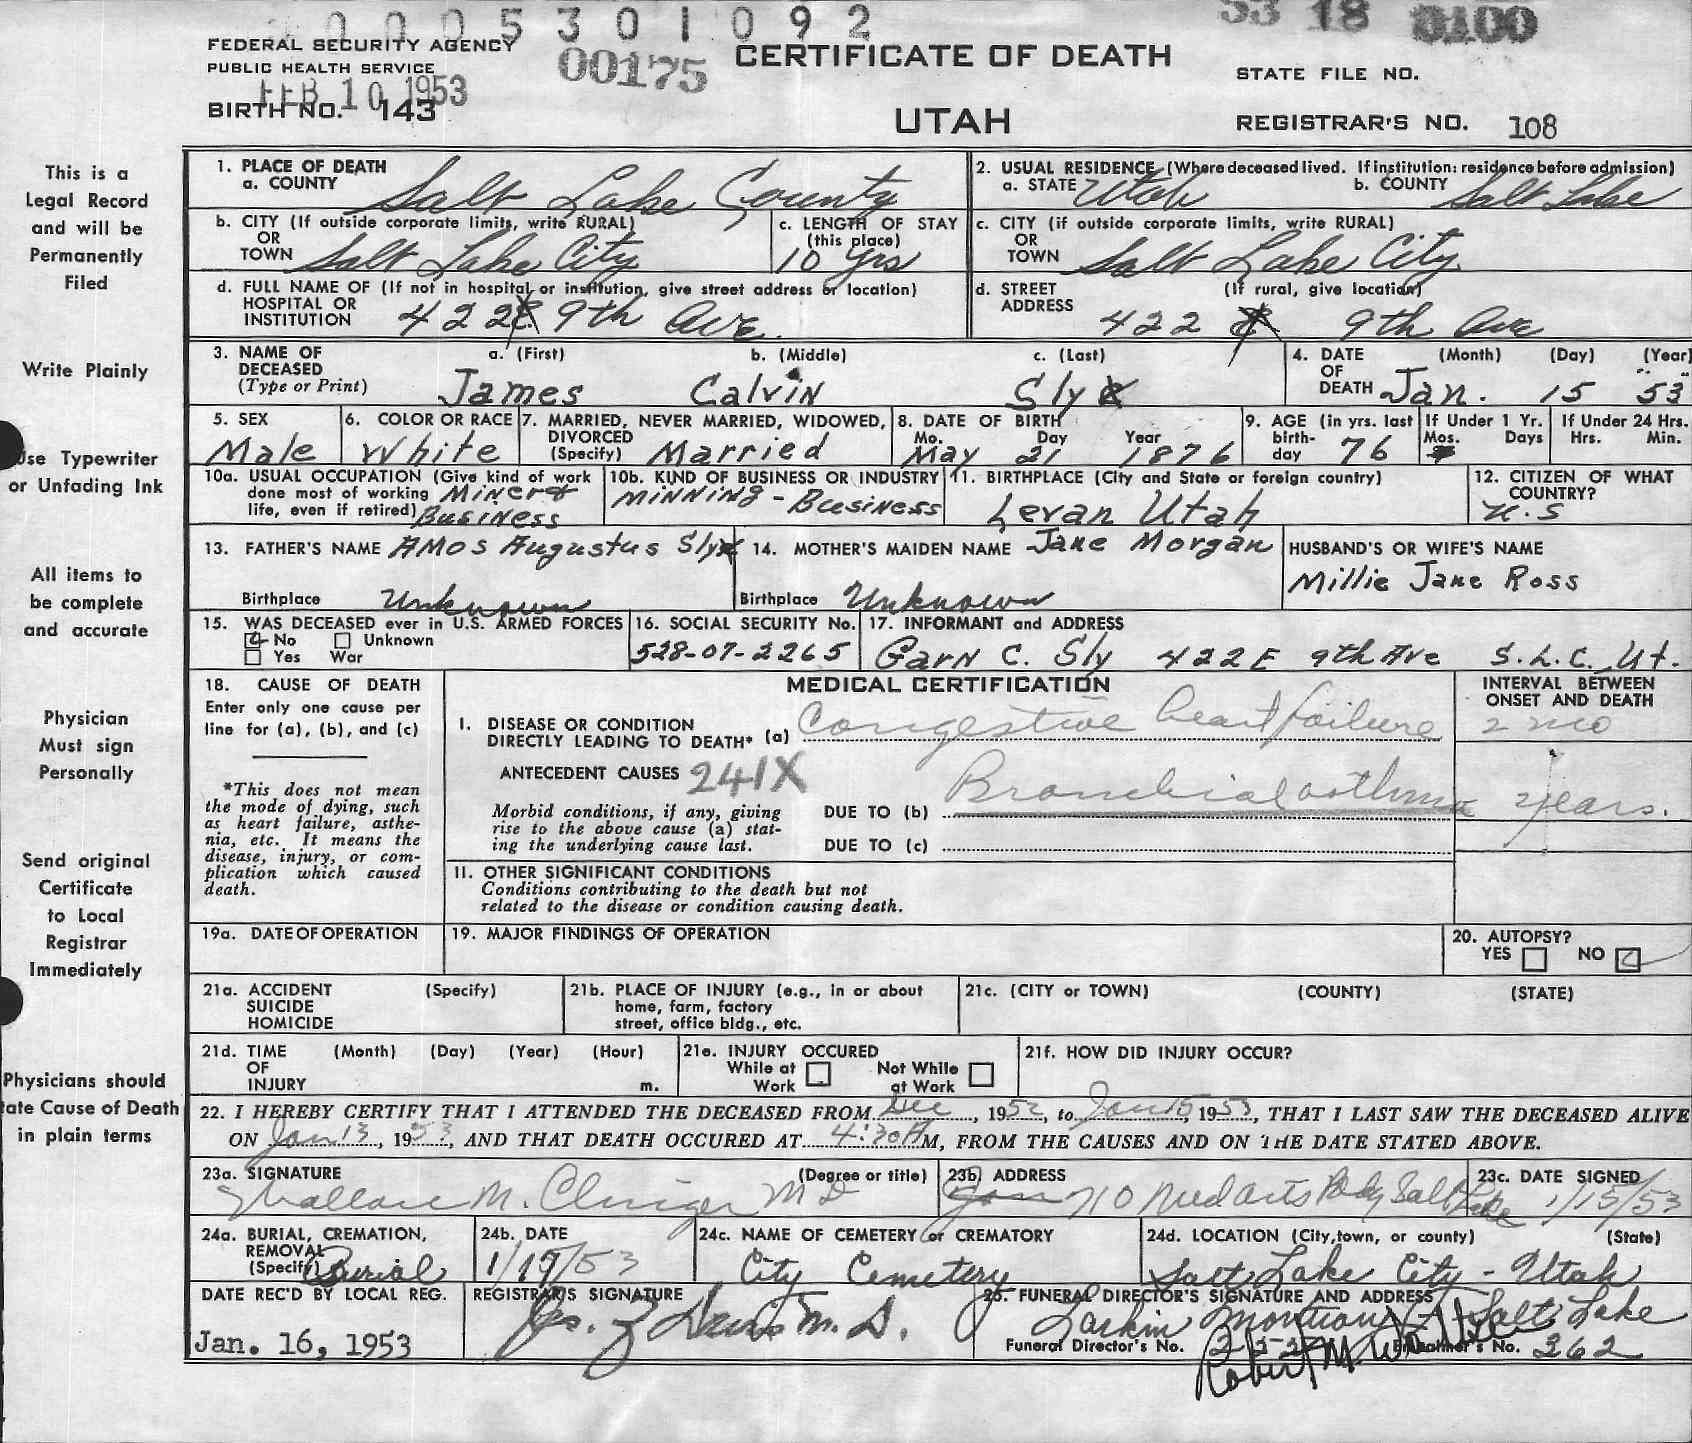 0005301092
53 18 0100
FEDERAL SECURITY AGENCY
PUBLIC HEALTH SERVICE
FEB 10 1953
BIRTH NO. 143
00175
CERTIFICATE OF DEATH
UTAH
STATE FILE NO.
REGISTRAR'S NO. 108
This is a
Legal Record
and will be
Permanently
Filed
Write Plainly
Use Typewriter
or Unfading Ink
All items to
be complete
and accurate
Physician
Must sign
Personally
Send original
Certificate
to Local
Registrar
Immediately
Physicians should
tate Cause of Death
in plain terms
1. PLACE OF DEATH
a. COUNTY Salt Lake County
2. USUAL RESIDENCE (Where deceased lived. If institution: residence before admission)
a. STATE Utah b. COUNTY Salt Lake
b. CITY (If outside corporate limits, write RURAL)
OR
TOWN Salt Lake City
c. LENGTH OF STAY
(this place)
10 yrs
c. CITY (if outside corporate limits, write RURAL)
OR
TOWN Salt Lake City
d. FULL NAME OF (If not in hospital or institution, give street address or location)
HOSPITAL OR
INSTITUTION 422 E 9th Ave.
d. STREET (If rural, give location)
ADDRESS 422 9th Ave
3. NAME OF
DECEASED
(Type or Print)
a. (First) b. (Middle) c. (Last)
James Calvin Sly
4. DATE (Month) (Day) (Year)
OF
DEATH Jan. 15 "53"
5. SEX
Male
6. COLOR OR RACE
White
7. MARRIED, NEVER MARRIED, WIDOWED,
DIVORCED
(Specify) Married
8. DATE OF BIRTH
Mo. Day Year
May 21 1876
9. AGE (in yrs. last
birth-
day 76
If Under 1 Yr.
Mos. Days
If Under 24 Hrs.
Hrs. Min.
10a. USUAL OCCUPATION (Give kind of work
done most of working Miner &
life, even if retired) Business
10b. KIND OF BUSINESS OR INDUSTRY
Minning - Business
11. BIRTHPLACE (City and State or foreign country)
Levan Utah
12. CITIZEN OF WHAT
COUNTRY?
U.S
13. FATHER'S NAME Amos Augustus Sly
Birthplace Unknown
14. MOTHER'S MAIDEN NAME Jane Morgan
Birthplace Unknown
HUSBAND'S OR WIFE'S NAME
Millie Jane Ross
15. WAS DECEASED ever in U.S. ARMED FORCES
No Unknown
Yes War
16. SOCIAL SECURITY No.
528-07-2265
17. INFORMANT and ADDRESS
Garn C. Sly 422 E 9th Ave S.L.C. Ut.
18. CAUSE OF DEATH
Enter only one cause per
line for (a), (b), and (c)
*This does not mean
the mode of dying, such
as heart failure, asthe-
nia, etc. It means the
disease, injury, or com-
plication which caused
death.
MEDICAL CERTIFICATION
INTERVAL BETWEEN
ONSET AND DEATH
I. DISEASE OR CONDITION
DIRECTLY LEADING TO DEATH* (a) Congestive heart failure 2 mo
ANTECEDENT CAUSES 241X
Morbid conditions, if any, giving
rise to the above cause (a) stat-
ing the underlying cause last.
DUE TO (b) Bronchial asthma years.
DUE TO (c)
II. OTHER SIGNIFICANT CONDITIONS
Conditions contributing to the death but not
related to the disease or condition causing death.
19a. DATE OF OPERATION
19. MAJOR FINDINGS OF OPERATION
20. AUTOPSY?
YES NO
21a. ACCIDENT (Specify)
SUICIDE
HOMICIDE
21b. PLACE OF INJURY (e.g., in or about
home, farm, factory
street, office bldg., etc.
21c. (CITY or TOWN) (COUNTY) (STATE)
21d. TIME (Month) (Day) (Year) (Hour)
OF
INJURY m.
21e. INJURY OCCURED
While at Work Not While at Work
21f. HOW DID INJURY OCCUR?
22. I HEREBY CERTIFY THAT I ATTENDED THE DECEASED FROM Dec, 1952, to Jan 15, 1953, THAT I LAST SAW THE DECEASED ALIVE
ON Jan 13, 1953, AND THAT DEATH OCCURED AT 4:30 AM, FROM THE CAUSES AND ON THE DATE STATED ABOVE.
23a. SIGNATURE (Degree or title)
Wallace M. Clinger MD
23b. ADDRESS
710 Med Arts Bldg Salt Lake
23c. DATE SIGNED
1/15/53
24a. BURIAL, CREMATION,
REMOVAL
(Specify) Burial
24b. DATE
1/17/53
24c. NAME OF CEMETERY or CREMATORY
City Cemetery
24d. LOCATION (City, town, or county) (State)
Salt Lake City - Utah
DATE REC'D BY LOCAL REG.
Jan. 16, 1953
REGISTRAR'S SIGNATURE
M. D.
25. FUNERAL DIRECTOR'S SIGNATURE AND ADDRESS
Larkin Salt Lake
Funeral Director's No. Embalmer's No. 262
Robert M.